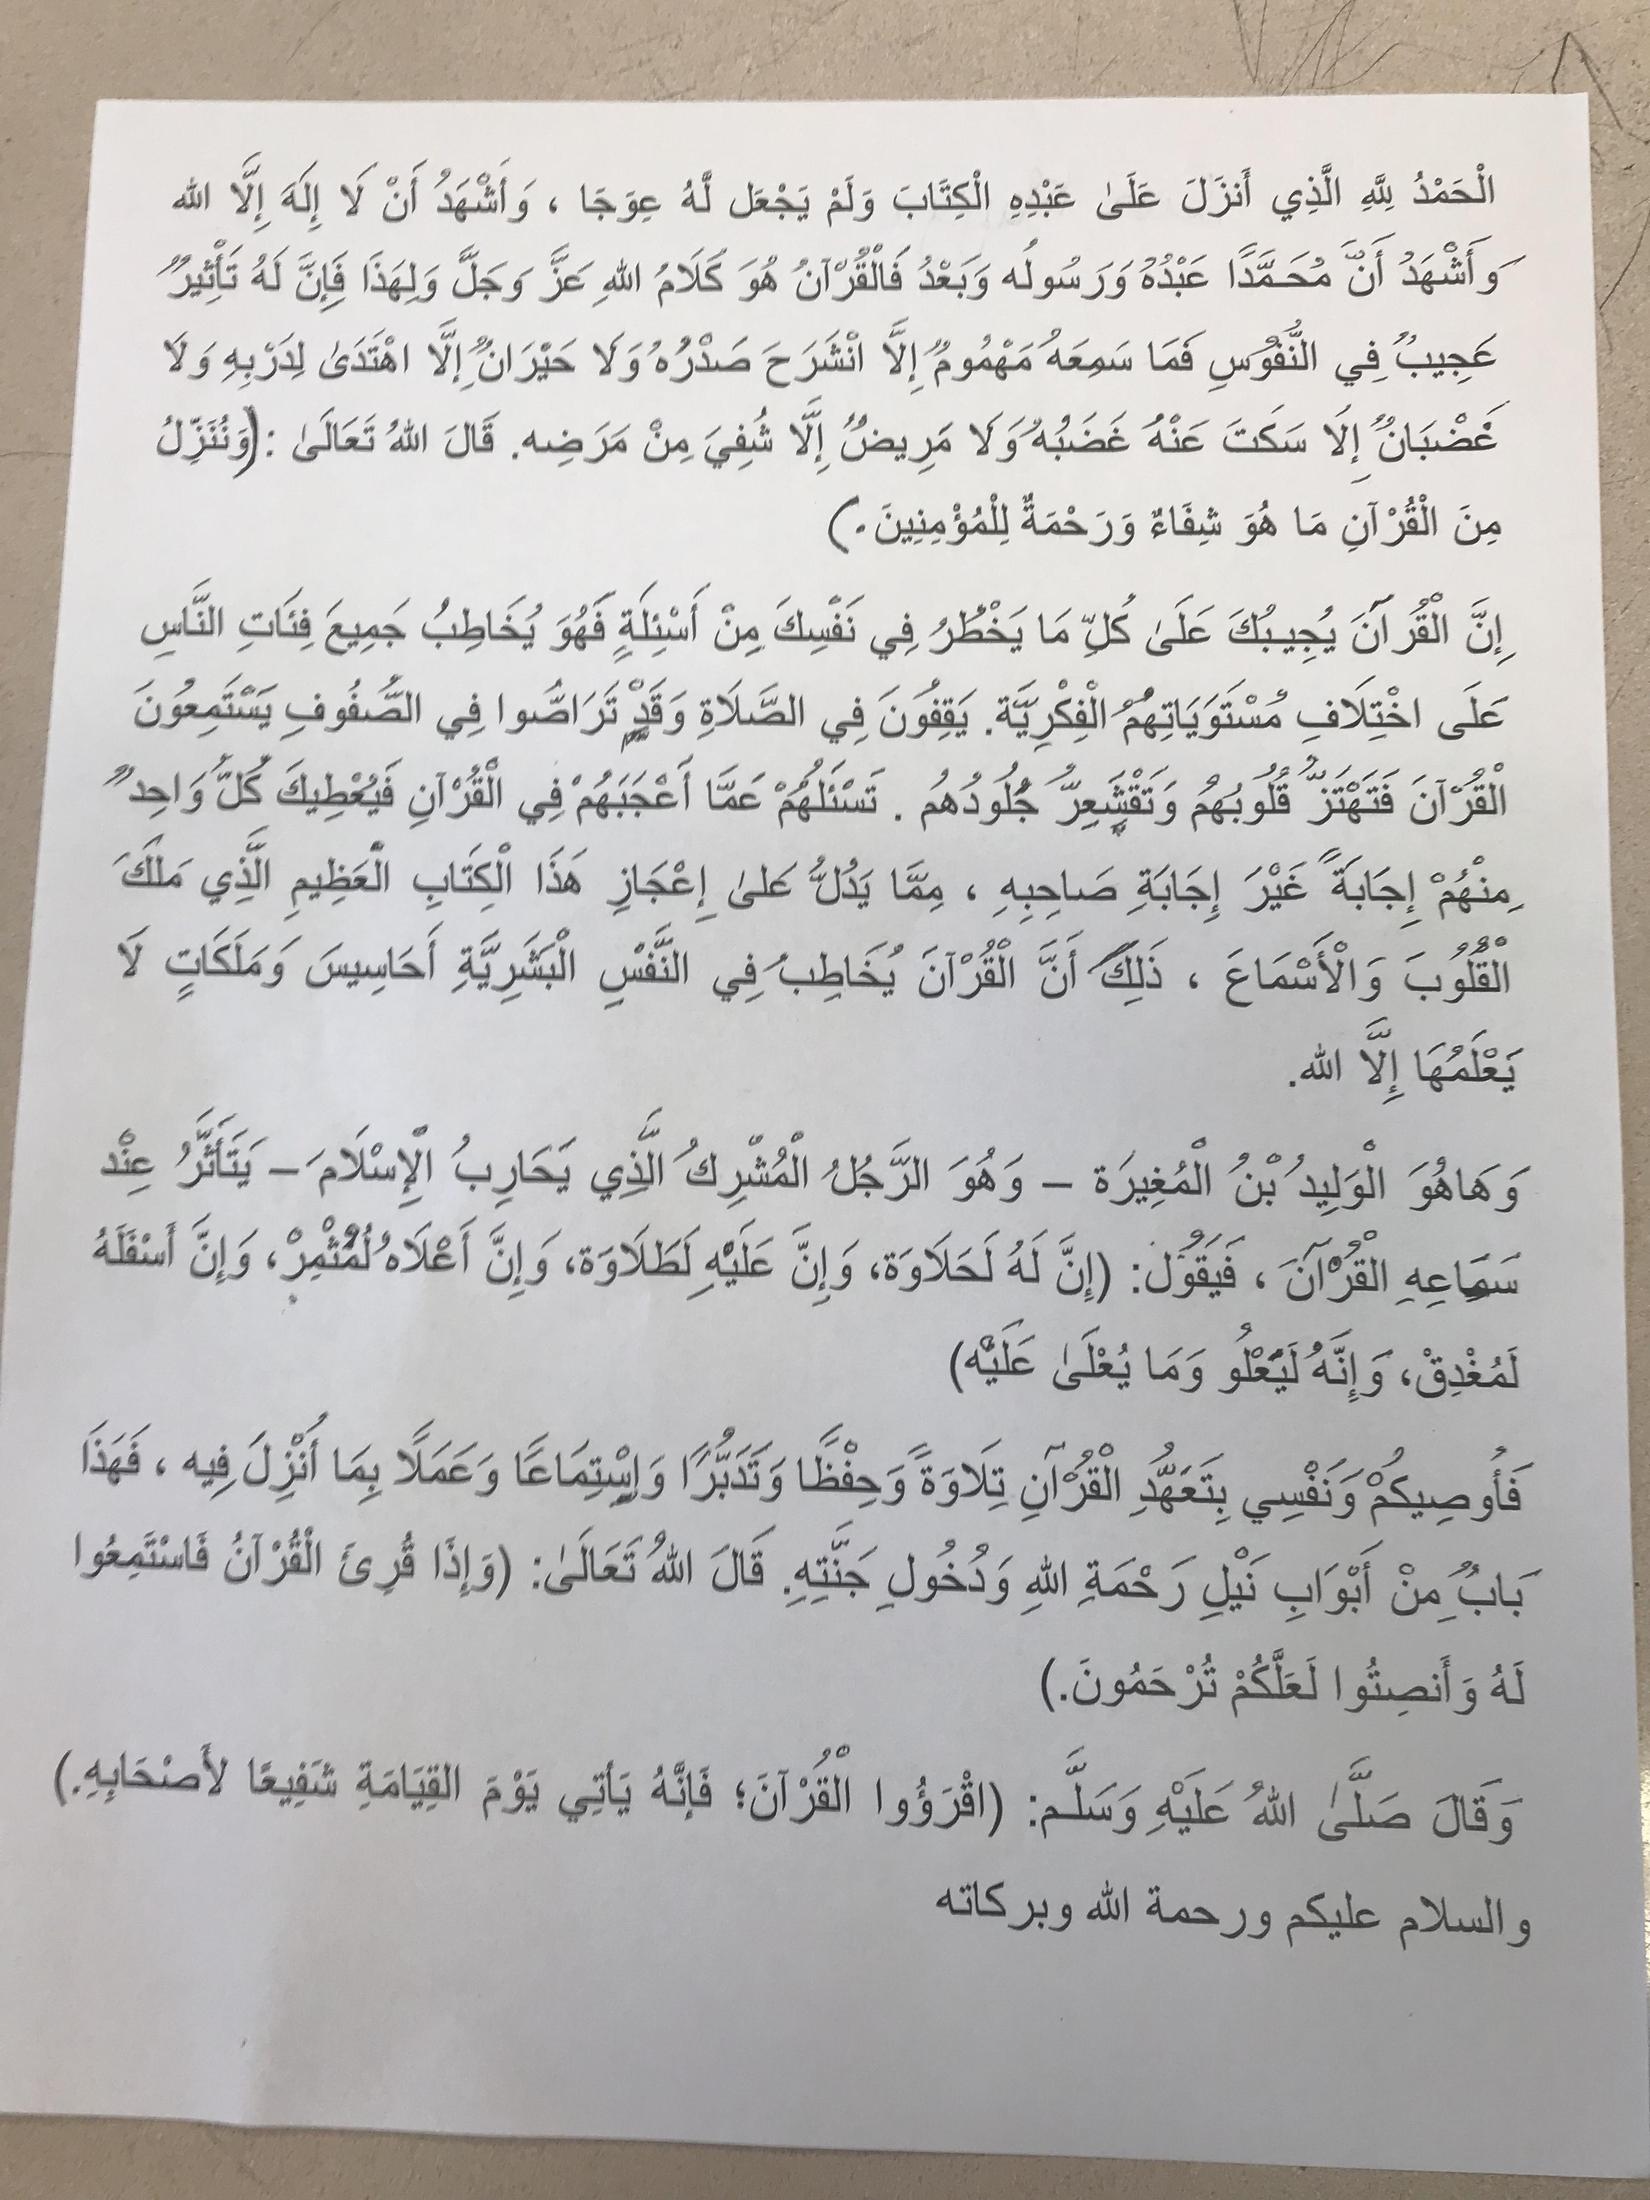 الْحَمْدُ لِلَّهِ الَّذِي أَنزَلَ عَلَىٰ عَبْدِهِ الْكِتَابَ وَلَمْ يَجْعَل لَّهُ عِوَجَا ، وَأَشْهَدُ أَنْ لَا إِلَهَ إِلَّا الله
وَأَشْهَدُ أَنَّ مُحَمَّدًا عَبْدُهُ وَرَسُولُه وَبَعْدُ فَالْقُرْآنُ هُوَ كَلَامُ اللهِ عَزَّ وَجَلَّ وَلِهَذَا فَإِنَّ لَهُ تَأْثِيرٌ
عَجِيبٌ فِي النُّفُوسِ فَمَا سَمِعَهُ مَهْمُومٌ إِلَّا انْشَرَحَ صَدْرُهُ وَلَا حَيْرَانٌ إِلَّا اهْتَدَىٰ لِدَرْبِهِ وَلَا
غَضْبَانٌ إِلَا سَكَتَ عَنْهُ غَضَبُهُ وَلَا مَرِيضٌ إِلَّا شُفِيَ مِنْ مَرَضِه. قَالَ اللهُ تَعَالَىٰ :(وَنُنَزِّلُ
مِنَ الْقُرْآنِ مَا هُوَ شِفَاءٌ وَرَحْمَةٌ لِلْمُؤْمِنِينَ.)
إِنَّ الْقُرْآنَ يُجِيبُكَ عَلَىٰ كُلِّ مَا يَخْطُرُ فِي نَفْسِكَ مِنْ أَسْئِلَةٍ فَهُوَ يُخَاطِبُ جَمِيعَ فِئَاتِ النَّاسِ
عَلَى اخْتِلَافِ مُسْتَوَيَاتِهِمُ الْفِكْرِيَّة. يَقِفُونَ فِي الصَّلَاةِ وَقَدْ تَرَاصُّوا فِي الصُّفُوفِ يَسْتَمِعُونَ
الْقُرْآنَ فَتَهْتَزُّ قُلُوبُهُمْ وَتَقْشَعِرُّ جُلُودُهُم . تَسْئَلُهُمْ عَمَّا أَعْجَبَهُمْ فِي الْقُرْآنِ فَيُعْطِيكَ كُلُّ وَاحِدٌ
مِنْهُمْ إِجَابَةً غَيْرَ إِجَابَةِ صَاحِبِهِ ، مِمَّا يَدُلُّ عَلىٰ إِعْجَازِ هَذَا الْكِتَابِ الْعَظِيمِ الَّذِي مَلَكَ
الْقُلُوبَ وَالْأَسْمَاعَ ، ذَلِكَ أَنَّ الْقُرْآنَ يُخَاطِبُ فِي النَّفْسِ الْبَشَرِيَّةِ أَحَاسِيسَ وَمَلَكَاتٍ لَا
يَعْلَمُهَا إِلَّا الله.
وَهَاهُوَ الْوَلِيدُ بْنُ الْمُغِيرَة – وَهُوَ الرَّجُلُ الْمُشْرِكُ الَّذِي يَحَارِبُ الْإِسْلَامَ – يَتَأَثَّرُ عِنْد
سَمَاعِهِ الْقُرْآنَ ، فَيَقُول: (إِنَّ لَهُ لَحَلَاوَة، وَإِنَّ عَلَيْهِ لَطَلَاوَة، وَإِنَّ أَعْلَاهُ لَمُثْمِرْ، وَإِنَّ أَسْفَلَهُ
لَمُغْدِقْ، وَإِنَّهُ لَيَعْلُو وَمَا يُعْلَىٰ عَلَيْه)
فَأُوصِيكُمْ وَنَفْسِي بِتَعَهُّدِ الْقُرْآنِ تِلَاوَةً وَحِفْظًا وَتَدَبُّرًا وَاِسْتِمَاعًا وَعَمَلًا بِمَا أُنْزِلَ فِيه ، فَهَذَا
بَابٌ مِنْ أَبْوَابِ نَيْلِ رَحْمَةِ اللهِ وَدُخُولِ جَنَّتِهِ. قَالَ اللهُ تَعَالَىٰ: (وَإِذَا قُرِئَ الْقُرْآنُ فَاسْتَمِعُوا
لَهُ وَأَنصِتُوا لَعَلَّكُمْ تُرْحَمُونَ.)
وَقَالَ صَلَّىٰ اللهُ عَلَيْهِ وَسَلَّم: (اقْرَؤُوا الْقُرْآنَ؛ فَإِنَّهُ يَأتِي يَوْمَ القِيَامَةِ شَفِيعًا لأَصْحَابِهِ.)
والسلام عليكم ورحمة الله وبركاته